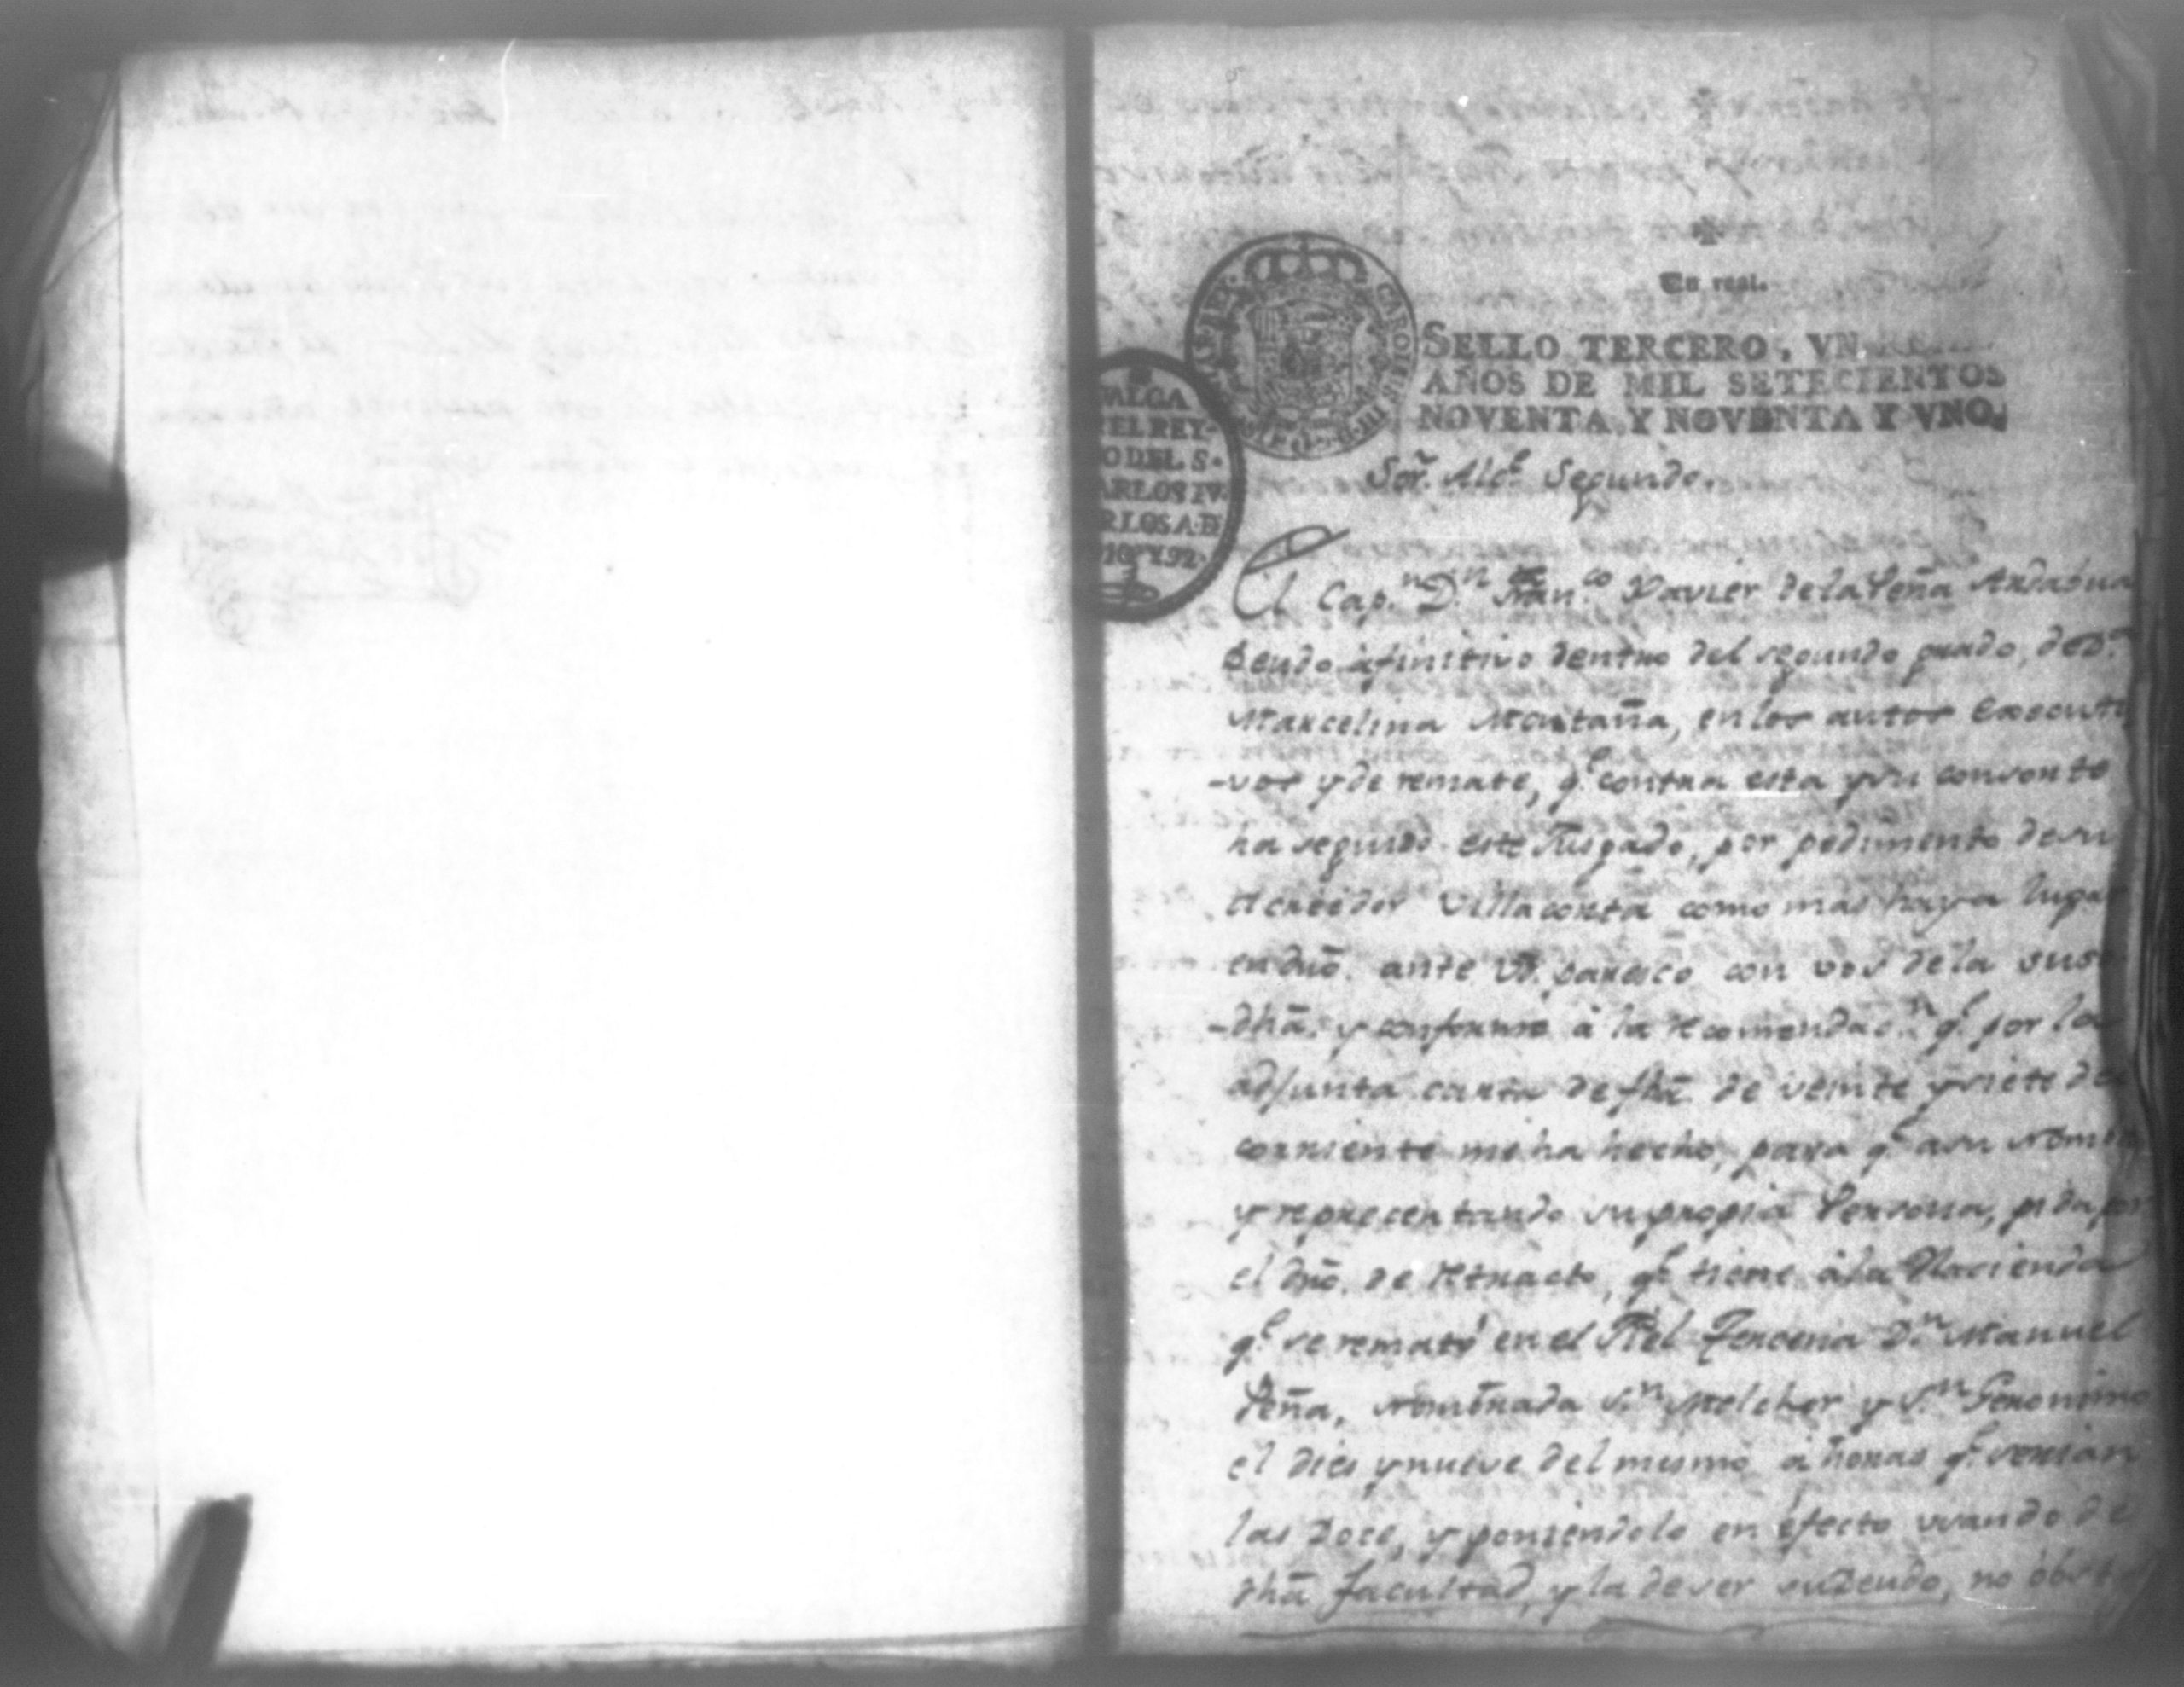 Un real.
SELLO TERCERO, VN
AÑOS DE MIL SETECIENTOS
NOVENTA, Y NOVENTA Y VNO.
VALGA
EL REY
O DEL S.
ARLOS IV.
RLOS A. D
Y 92.
Sor. Alce. Segundo.
El Cap.n D.n Fran.co Xavier de la Peña Andabua
Deudo afinitivo dentro del segundo grado, de D.a
Marcelina Montaña, en los autos Executi
-vos y de remate, q.e contra esta y su consorte
ha seguido este Jusgado, por pedimento de su
Acreedor Villacorta como mas haya lugar
en dro. ante Vd. paresco con vos de la sus
-dha. y conforme à la recomendac.n q.e por la
adjunta carta de fha. de veinte y siete del
corriente me ha hecho, para q.e a su nombre
y reprecentando su propia Persona, pida por
el dro. de Retracto, q.e tiene à la Hacienda
q.e se rematò en el D.n Manuel
Peña, nombrada S.n Melchor y S.n Geronimo
el dies y nueve del mismo à horas q.e serian
las Doce, y poniendolo en èfecto usando de
dha facultad, y la de ser su Deudo, no òbst